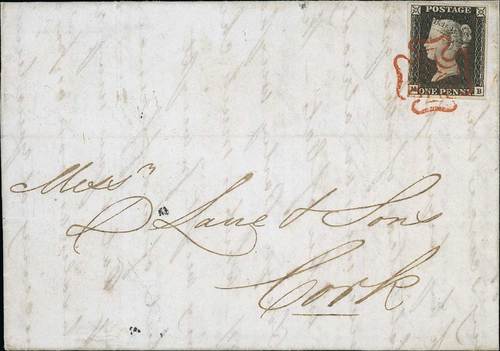 POSTAGE
M ONE PENNY B
Messrs
D Lane & Sons
Cork